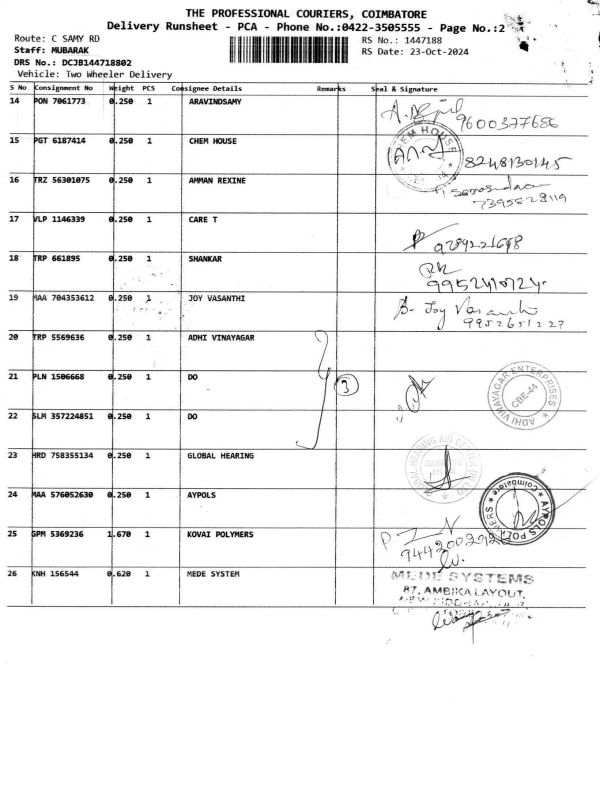 THE PROFESSIONAL COURIERS, COIMBATORE
Delivery Runsheet - PCA - Phone No.:0422-3505555 - Page No.:2
Route: C SAMY RD RS No.: 1447188
Staff: MUBARAK RS Date: 23-Oct-2024
DRS No.: DCJB144718802
Vehicle: Two Wheeler Delivery
S No Consignment No Weight PCS Consignee Details Remarks Seal & Signature
14 PON 7061773 0.250 1 ARAVINDSAMY
9600377686
15 PGT 6187414 0.250 1 CHEM HOUSE
CHEM HOUSE
8248130145
16 TRZ 56301075 0.250 1 AMMAN REXINE
7395828119
17 VLP 1146339 0.250 1 CARE T
18 TRP 661895 0.250 1 SHANKAR
19 MAA 704353612 0.250 1 JOY VASANTHI
B. Joy Vasanthi
9952651227
20 TRP 5569636 0.250 1 ADHI VINAYAGAR
21 PLN 1506668 0.250 1 DO
3
ADHI VINAYAGAR ENTERPRISES
CBE-44
22 SLM 357224851 0.250 1 DO
23 HRD 758355134 0.250 1 GLOBAL HEARING
24 MAA 576052630 0.250 1 AYPOLS
AYPOLS POLYMERS
Coimbatore
25 GPM 5369236 1.670 1 KOVAI POLYMERS
26 KNH 156544 0.620 1 MEDE SYSTEM
MEDE SYSTEMS
87, AMBIKA LAYOUT,